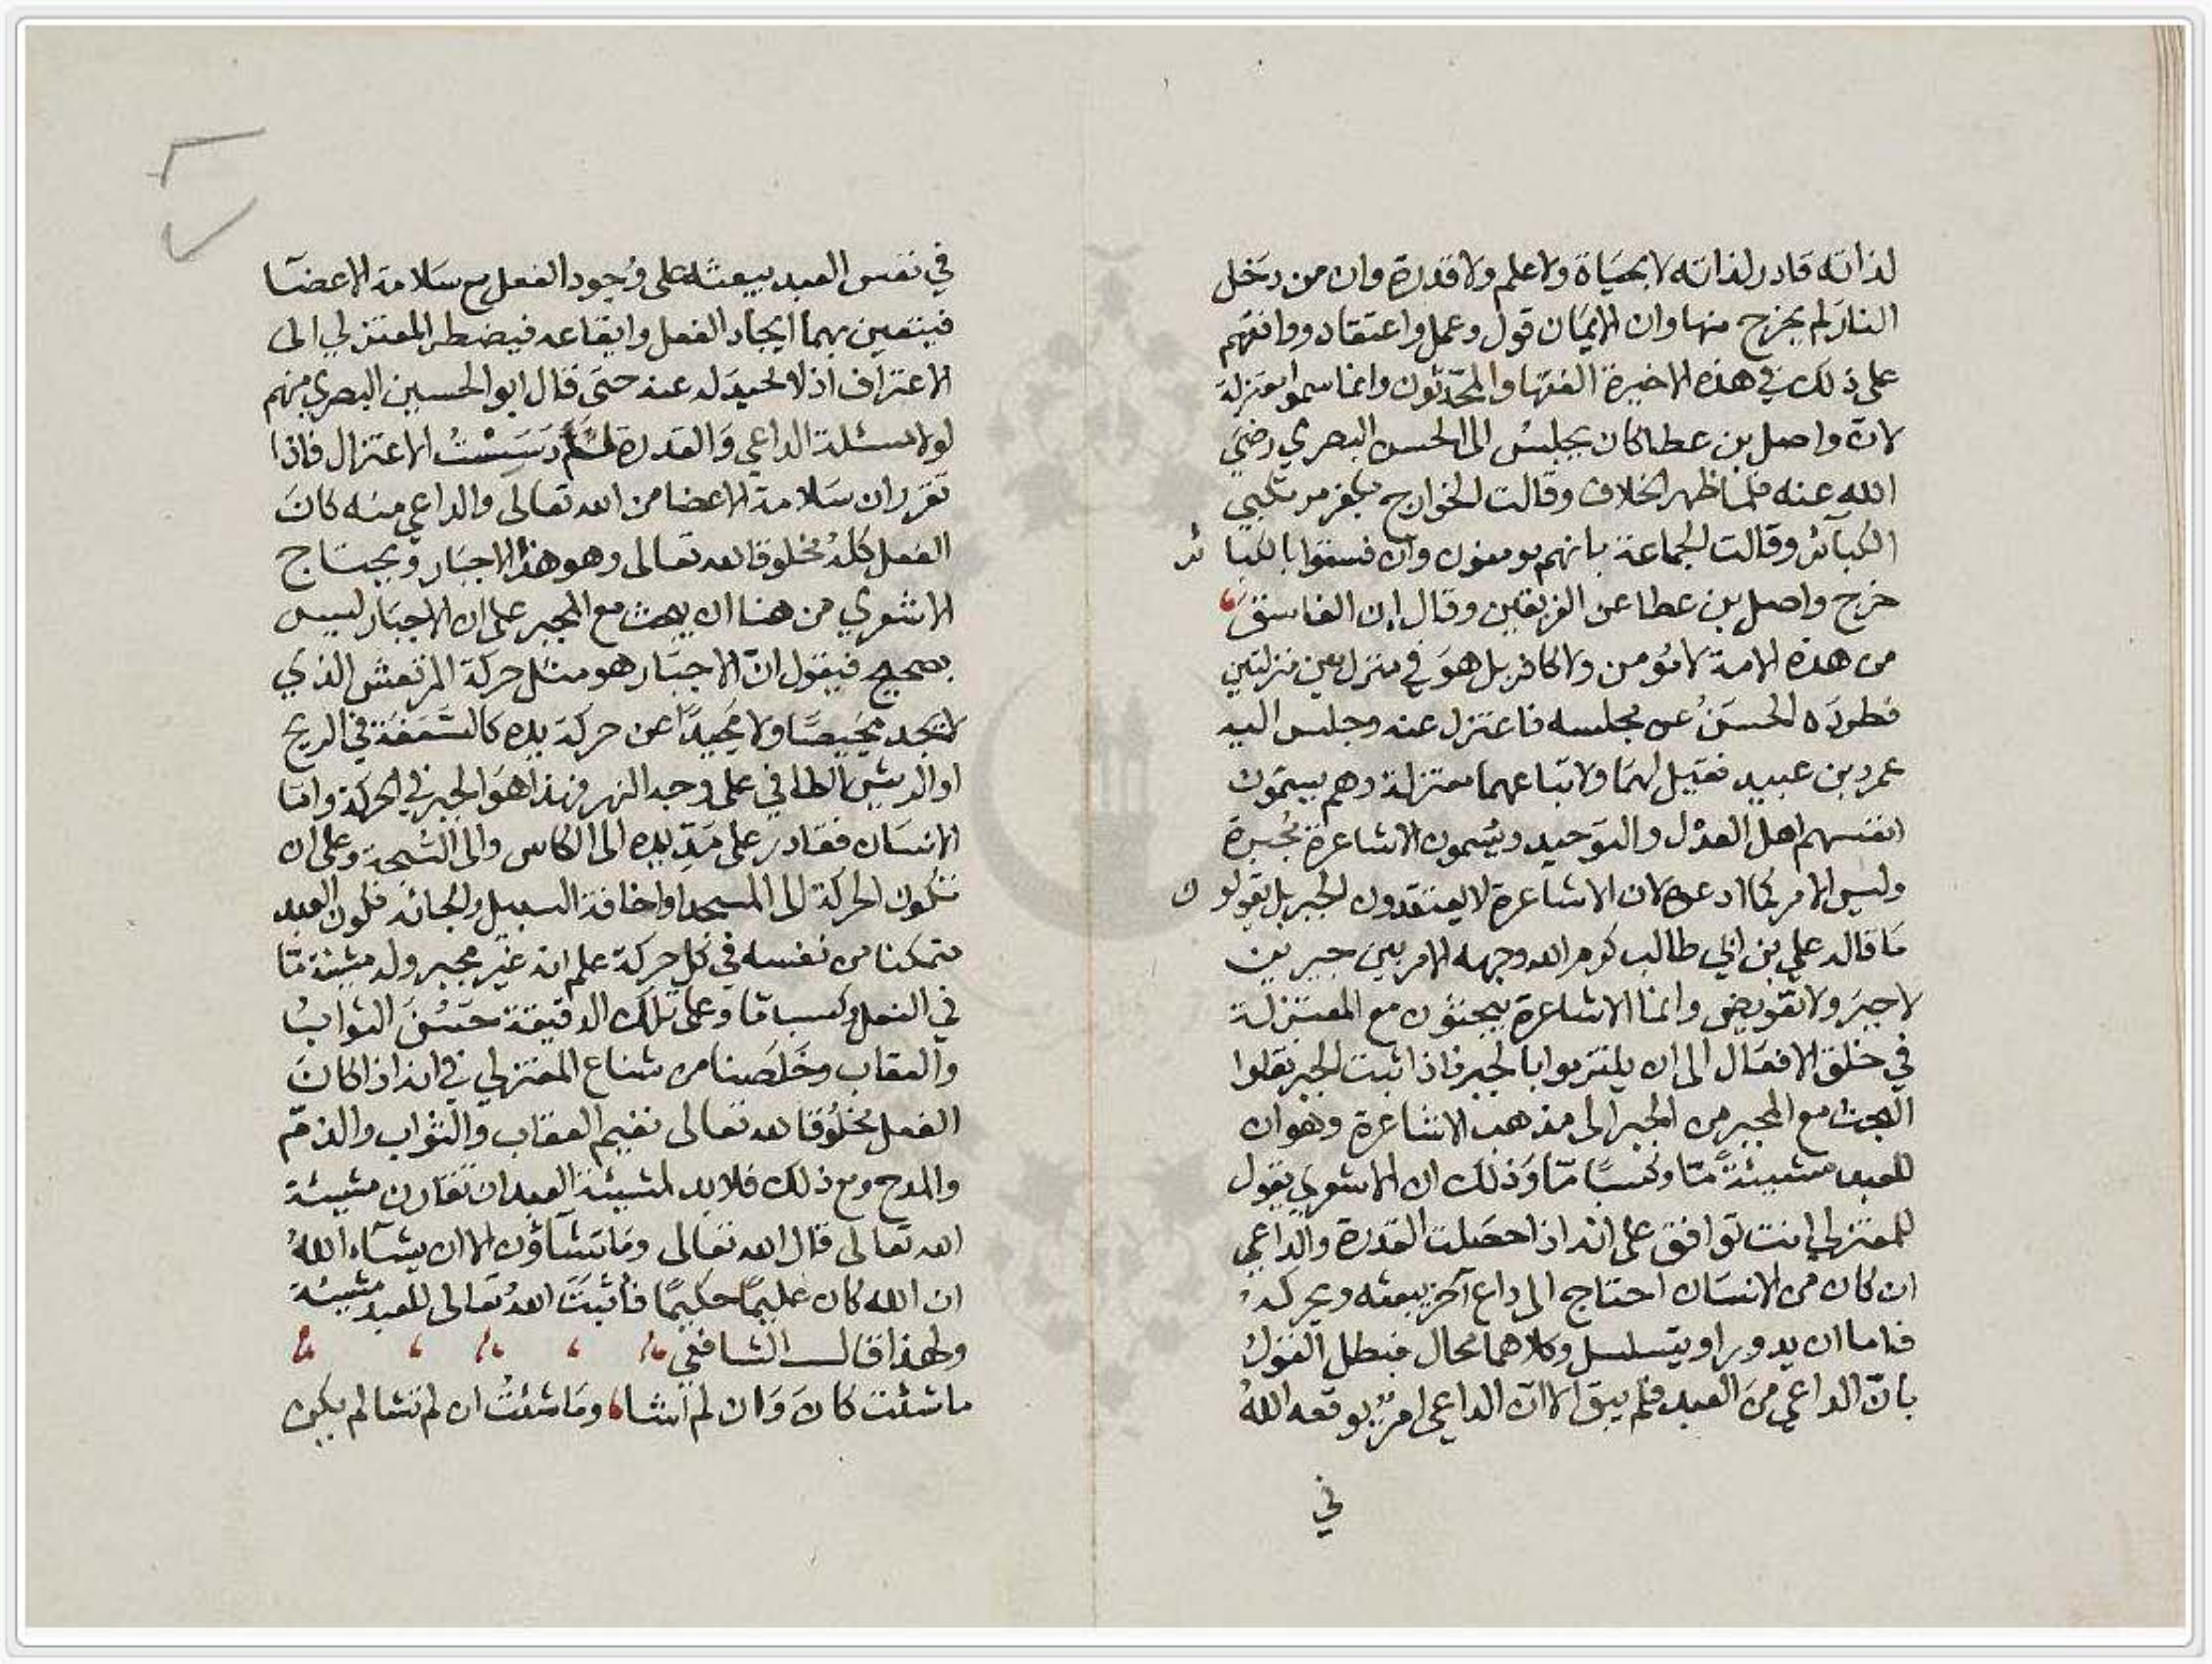 لذاته قادر لذاته لا بحياة ولا علم ولا قدرة وان من دخل
النار لم يخرج منها وان الايمان قول وعمل واعتقاد ووافقهم
على ذلك في هذه الاخيرة الفقها والمحدثون وانما سموا معتزلة
لان واصل بن عطا كان يجلس الى الحسن البصري رضي
الله عنه فلما ظهر الخلاف وقالت الخوارج بكفر مرتكبي
الكبآئر وقالت الجماعة بانهم مومنون وان فسقوا بالكبائر
خرج واصل بن عطا عن الفريقين وقال إن الفاسق
من هذه الامة لا مؤمن ولا كافر بل هو في منزل بين منزلتين
فطرده الحسن عن مجلسه فاعتزل عنه وجلس اليه
عمرو بن عبيد فقيل لهما ولاتباعهما معتزلة وهم يسمون
انفسهم اهل العدل والتوحيد ويسمون الاشاعرة مجبرة
وليس الامر كما ادعوا لان الاشاعرة لا يعتقدون الجبر بل يقولون
ما قاله علي بن ابي طالب كرم الله وجهه الامر بين جبرين
لا جبر ولا تفويض وانما الاشاعرة يبحثون مع المعتزلة
في خلق الافعال الى ان يلتزموا بالجبر فاذا اثبت الجبر نقلوا
البحث مع المجبر من الجبر الى مذهب الاشاعرة وهو ان
للعبد مشيئة ما وكسبا ما وذلك ان الاشعري يقول
للمعتزلي انت توافق على انه اذا حصلت القدرة والداعي
ان كان من الانسان احتاج الى داع آخر يبعثه ويحركه
فاما ان يدور او يتسلسل وكلاهما محال فبطل القول
بان الداعي من العبد فلم يبق الا ان الداعي امر يوقعه الله
في
في نفس العبد يبعثه على وجود الفعل مع سلامة الاعضآ
فيتعين بهما ايجاد الفعل وايقاعه فيضطر المعتزلي الى
الاعتراف اذ لا محيد له عنه حتى قال ابو الحسين البصري منهم
لولا مسئلة الداعي والقدرة الاعتزال فاذا
تقرر ان سلامة الاعضا من الله تعالى والداعي منه كان
الفعل كله مخلوقا لله تعالى وهو هذا الاجبار ويحتاج
الاشعري من هنا ان يبحث مع المجبر على ان الاجبار ليس
بصحيح فيقول ان الاجبار هو مثل حركة المرتعش الذي
لا يجد محيصا ولا محيدا عن حركة يده كالسعفة في الريح
او الريش الطافي على وجه النهر فهذا هو الجبر في الحركة واما
الانسان فقادر على مد يده الى الكاس والى السبحة وعلى ان
تكون الحركة الى المسجد او اخافة السبيل والحانه فلكون العبد
متمكنا من نفسه في كل حركة علم انه غير مجبر وله مشيئة ما
في الفعل وكسبا ما وعلى تلك الدقيقة حسن الثواب
والعقاب وخلصنا من شناع المعتزلي في انه اذا كان
الفعل مخلوقا لله تعالى ففيم العقاب والثواب والذم
والمدح ومع ذلك فلا بد لمشيئة العبد ان تقارن مشيئة
الله تعالى قال الله تعالى وما تشآؤن الا ان يشآء الله
ان الله كان عليما حكيما فأثبت الله تعالى للعبد مشيئة
ولهذا قال الشافعي
ما شئت كان وان لم اشا وما شئت ان لم تشا لم يكن